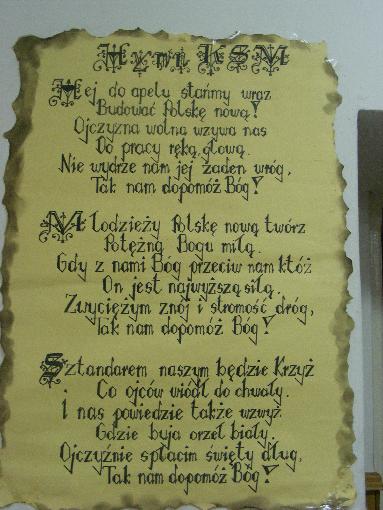 Hymn KSM
Hej do apelu stańmy wraz
Budować Polskę nową!
Ojczyzna wolna wzywa nas
Do pracy ręką, głową.
Nie wydrze nam jej żaden wróg,
Tak nam dopomóż Bóg!
Młodzieży Polskę nową twórz
Potężną Bogu miłą.
Gdy z nami Bóg przeciw nam któż
On jest najwyższą siłą.
Zwyciężym znój i stromość dróg,
Tak nam dopomóż Bóg!
Sztandarem naszym będzie Krzyż
Co ojców wiódł do chwały.
I nas powiedzie także wzwyż
Gdzie buja orzeł biały.
Ojczyźnie spłacim święty dług,
Tak nam dopomóż Bóg!